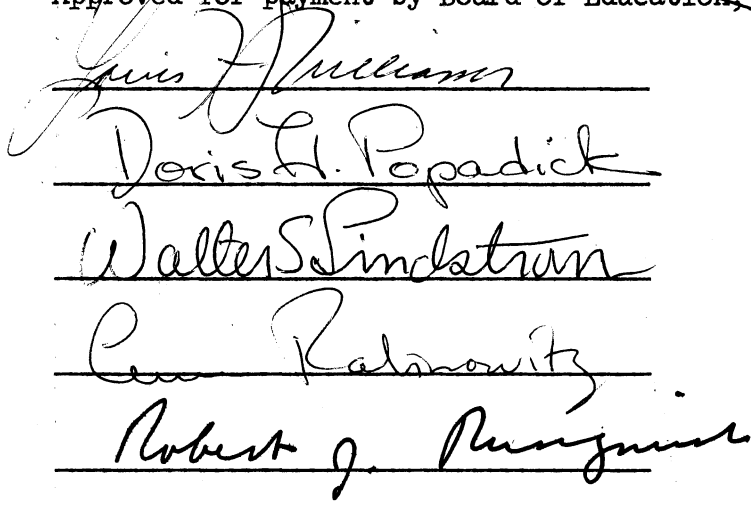 Approved for payment by Board of Education,
Louis F. Williams
Doris H. Popadick
Walter S Lindstrom
Rabinowitz
Robert J.